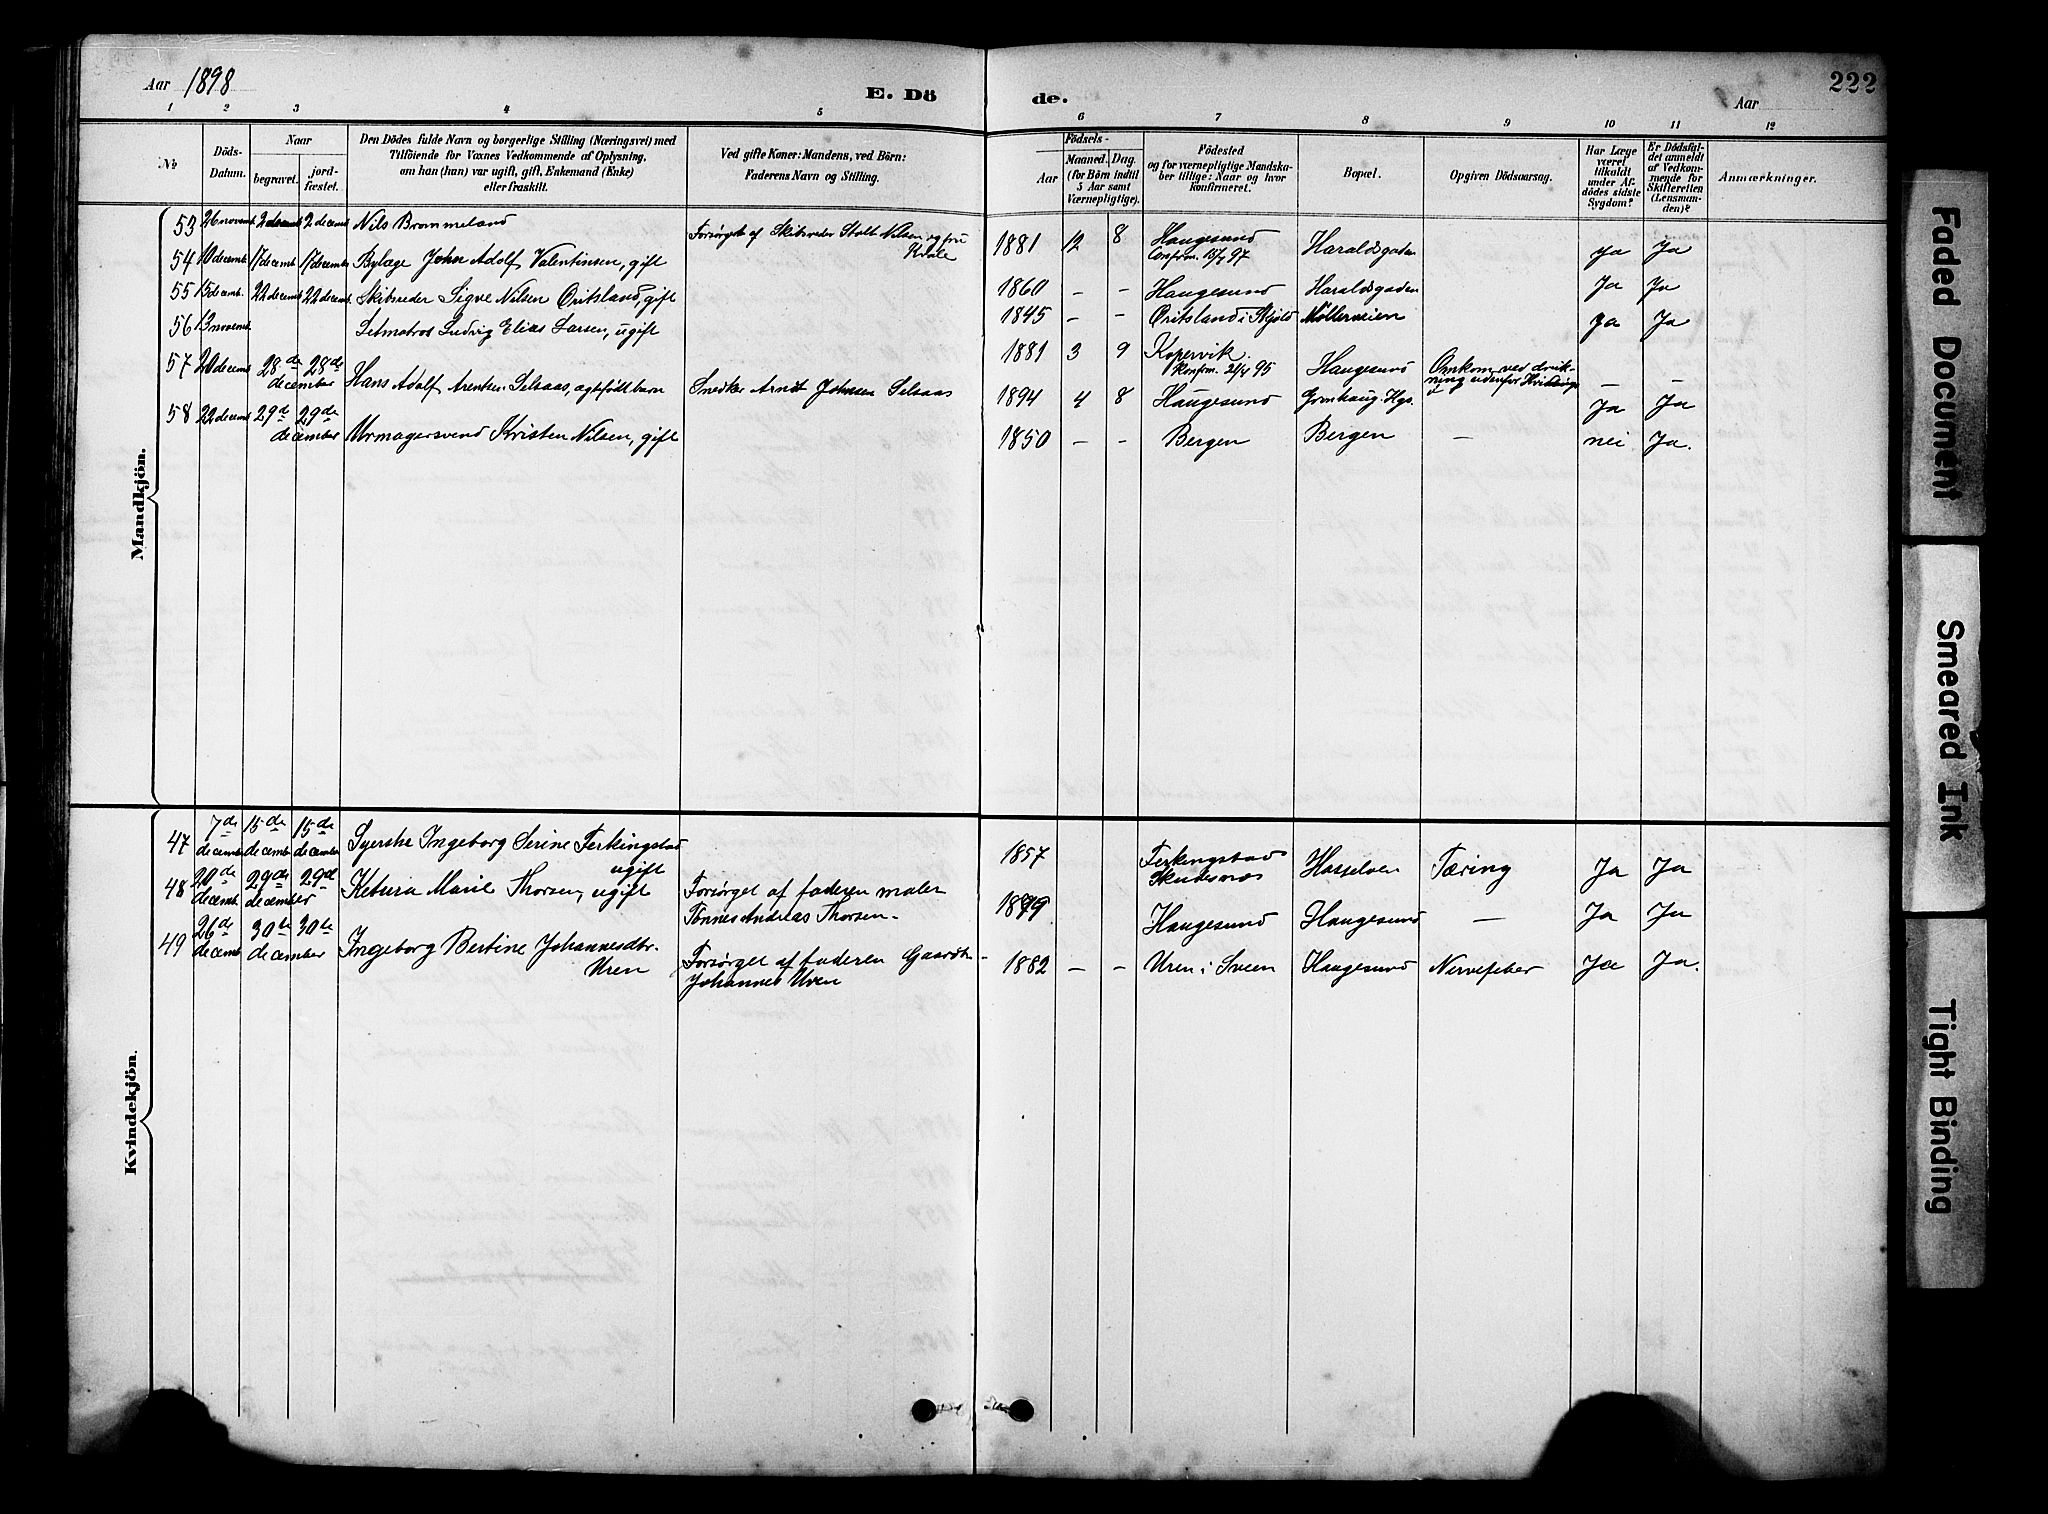 Aar 1898
E. Dö
de.
Aar
222
1 2 3 4 5 6 7 8 9 10 11 12
No
Döds-
Datum.
Naar
begravet.
jord-
fæstet.
Den Dödes fulde Navn og borgerlige Stilling (Næringsvei) med
Tilföiende for Voxnes Vedkommende af Oplysning,
om han (hun) var ugift, gift, Enkemand (Enke)
eller fraskilt.
Ved gifte Koner: Mandens, ved Börn:
Faderens Navn og Stilling.
Födsels-
Aar
Maaned.
Dag.
(for Börn indtil
5 Aar samt
Værnepligtige).
Födested
og for værnepligtige Mandska-
ber tillige: Naar og hvor
konfirmeret.
Bopæl.
Opgiven Dödsaarsag.
Har Læge
været
tilkaldt
under Af-
dödes sidste
Sygdom?
Er Dödsful-
det anmeldt
af Vedkom-
mende for
Skifteretten
(Lensman-
den)?
Anmærkninger.
Mandkjön.
53 26 novemb 2 decemb 2 decemb Nils Brommeland Forsörget af Skibsreder Stolt Nilsen og fru
1881 12 8 Haugesund Haraldsgaden ja Ja
Confirm. 97
54 10 decemb. 17 decemb 17 decemb Bylæge John Adolf Valentinsen, gift
1860 – – Haugesund Haraldsgaden Ja Ja
55 15 decemb. 22 decemb 22 decemb. Skibsreder Sigve Nilsen Öritsland, gift
1845 – – Öritsland i Skjold Möllerveien Ja Ja
56 13 novemb Letmatros Ludvig Elias Larsen, ugift
1881 3 9 Kopervik. Haugesund Omkom ved druk-
Konfirm. 2/4 95 ning udenfor – –
57 20 decemb 28de december 28de Hans Adolf Arentsen Selsaas, ægtefödt barn Snedker Arndt Johnsen Selsaas
1894 4 8 Haugesund Grönhaug. Hgs. Ja Ja
58 22 decemb 29de december 29de Urmagersvend Kristen Nilsen, gift
1850 – – Bergen Bergen – nei Ja.
Kvindekjön.
47 7de decemb 15de decemb 15de december Syerske Ingeborg Serine Ferkingstad
ugift
1857 Ferkingstad Hasseloen Tæring Ja Ja
Skudesnæs
48 20de decemb. 29de december 29de Ketura Marie Thorsen, ugift Forsörget af faderen maler
Tönnes Andreas Thorsen –
1879 Haugesund Haugesund – Ja Ja
49 26de decemb. 30te december 30te Ingeborg Bertine Johannesdtr. Forsörget af faderen Gaardbr –
Uren Johannes Uren
1882 – – Uren i Sveen Haugesund Nervefeber Ja Ja.
Faded Document
Smeared Ink
Tight Binding